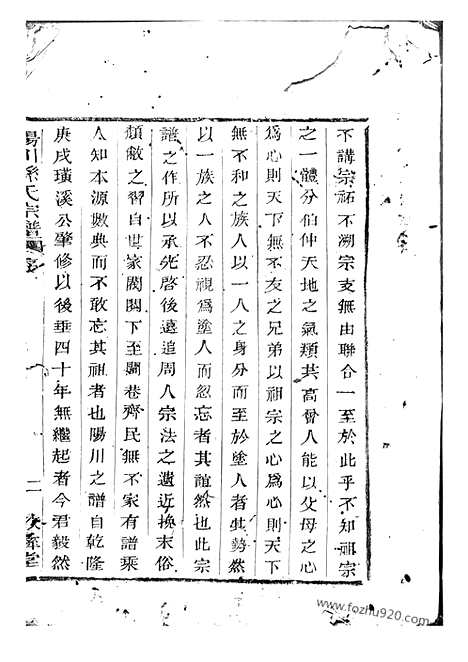 不講宗祏不溯宗支無由聯合一至於此乎不知祖宗
之一體分伯仲天地之氣類共高曾人能以父母之心
爲心則天下無不友之兄弟以祖宗之心爲心則天下
無不和之族人以一人之身分而至於塗人者其勢然
以一族之人不忍視爲塗人而忽忘者其誼然也此宗
譜之作所以承先啓後遠追周人宗法之遺近換末俗
頹敝之習自世家閥閱下至閭巷齊民無不家有譜乘
人知本源數典而不敢忘其祖者也陽川之譜自乾隆
庚戌璜溪公肇修以後垂四十年無繼起者今君毅然
陽川孫氏宗譜 序 二 堂
www.fozhu920.com